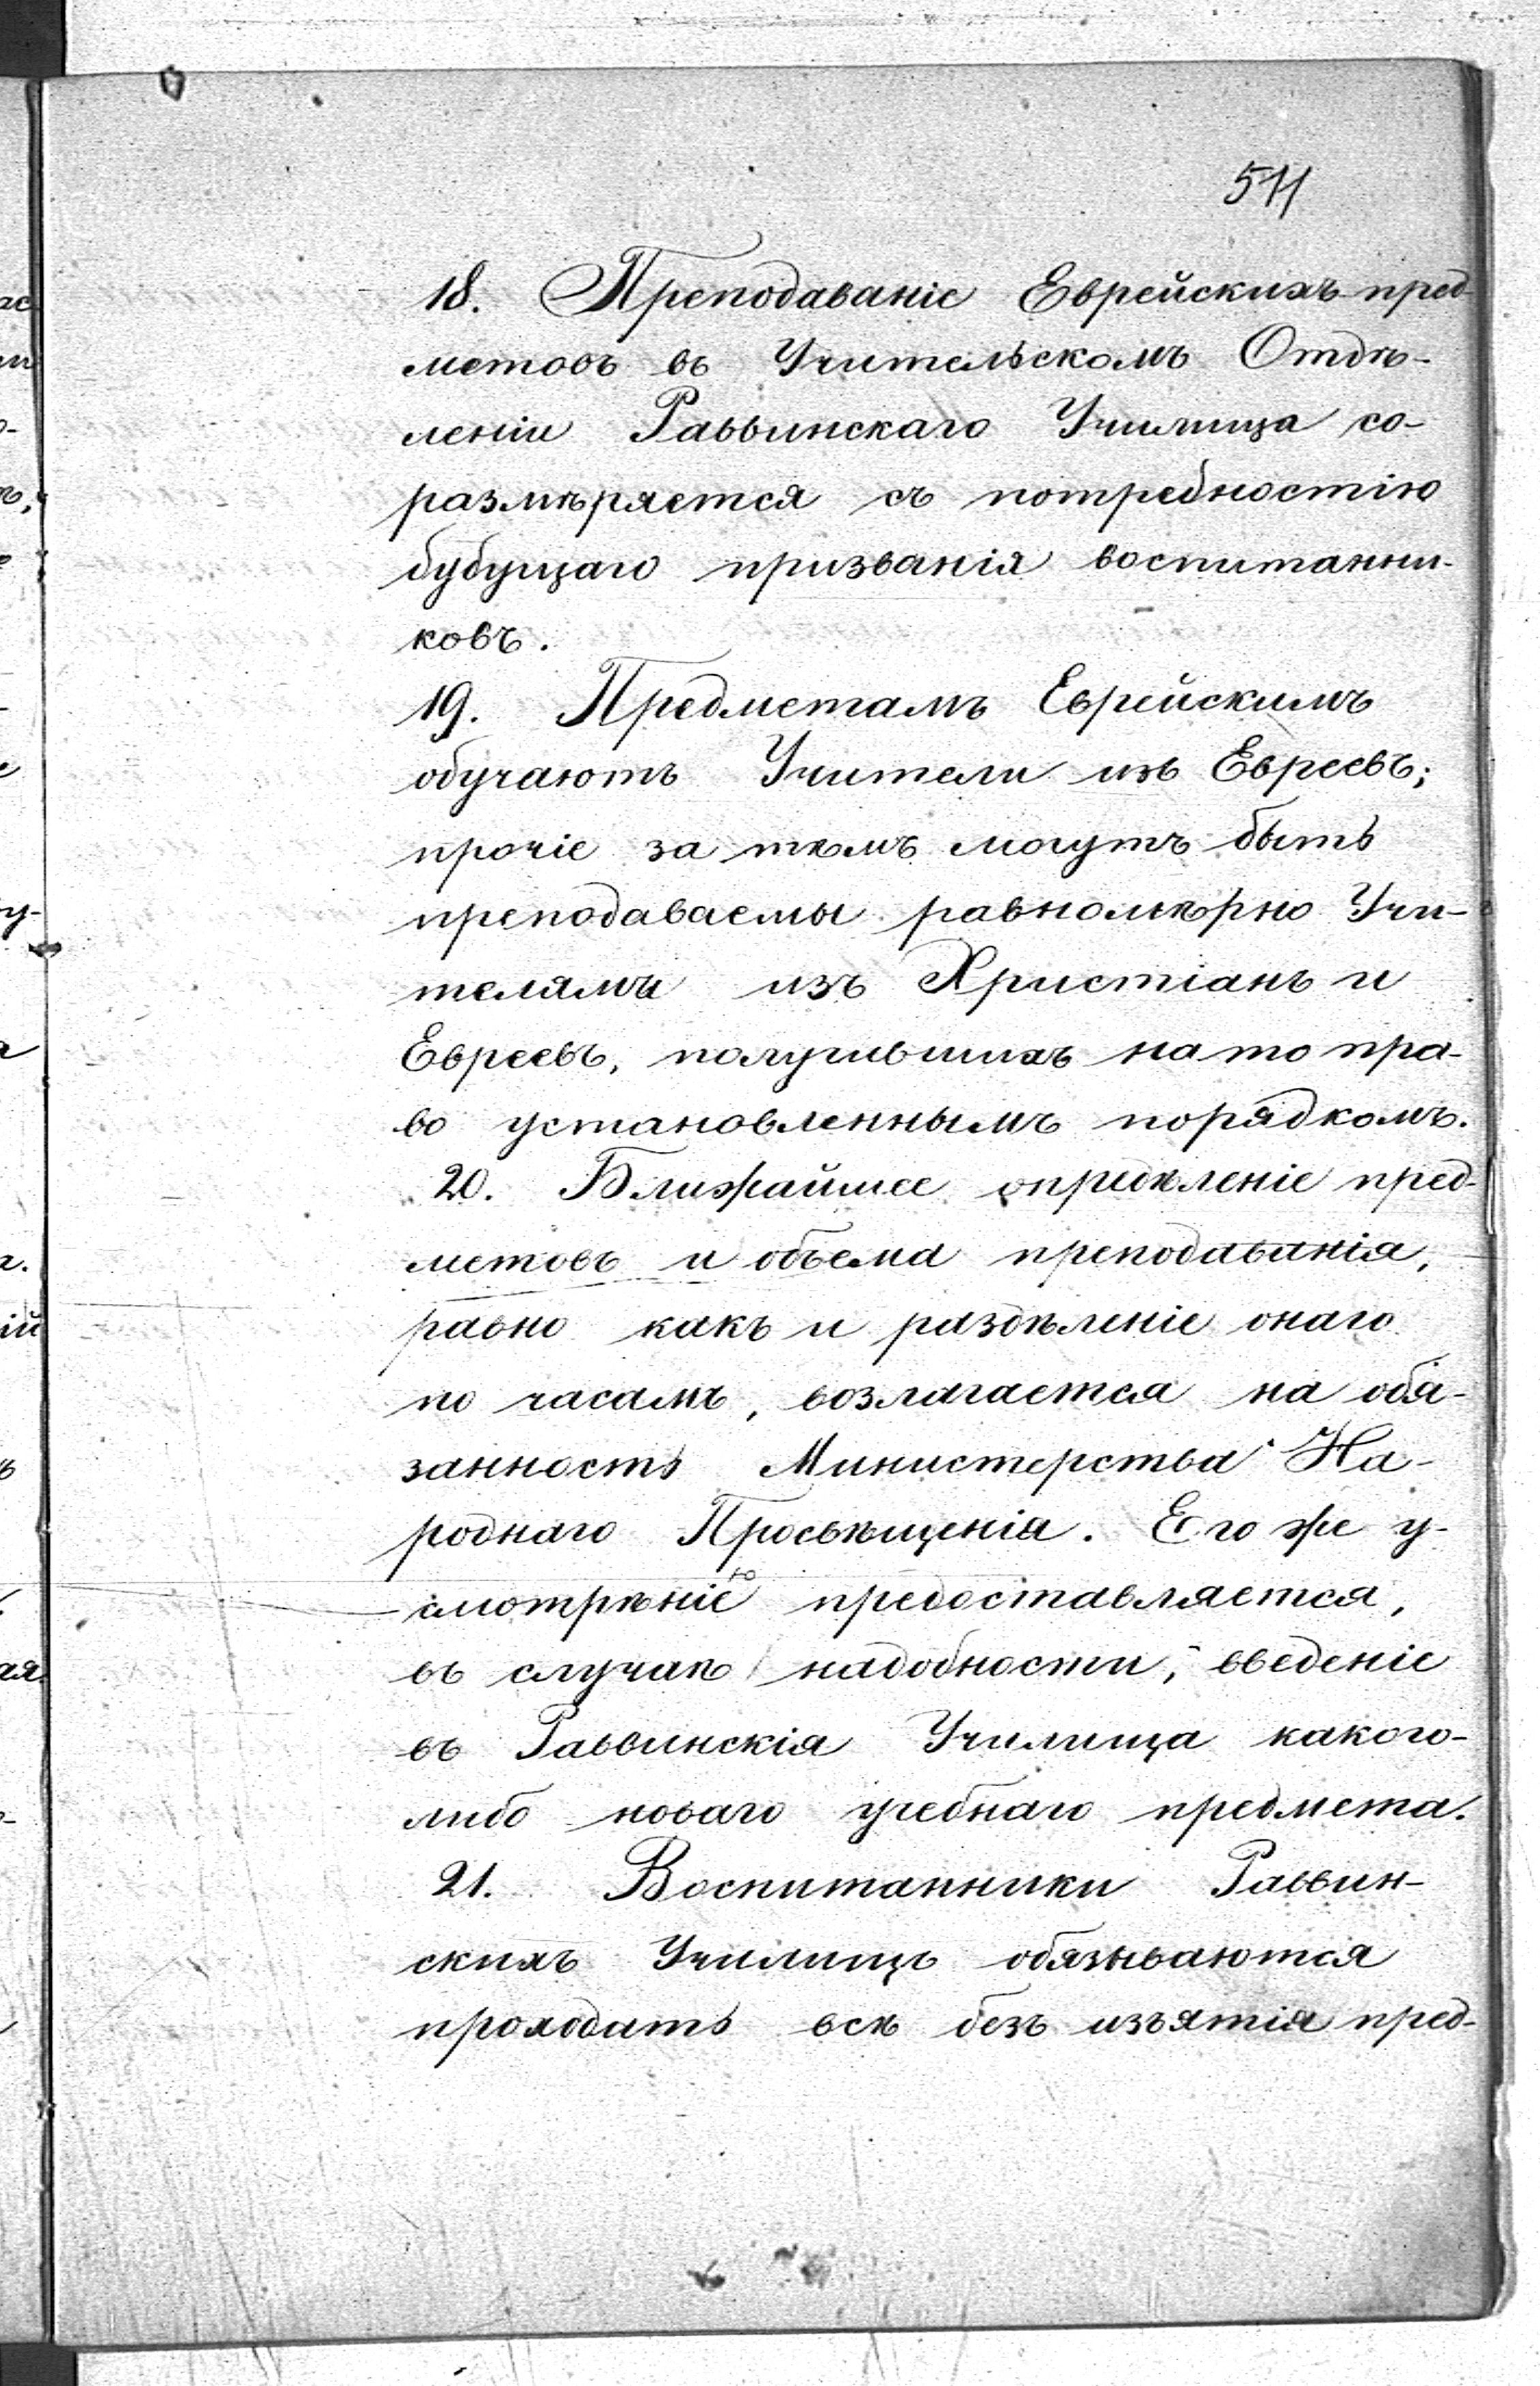 511
18. Преподаваніе Еврейскихъ пред-
метовъ въ Учительскомъ Отдѣ-
леніи Раввинскаго Училища со-
размѣряется съ потребностію
бубущаго призванія воспитанни-
ковъ.
19. Предметамъ Еврейскимъ
обучаютъ Учители изъ Евреевъ;
прочіе за тѣмъ могутъ быть
преподаваемы равномѣрно Учи-
телями изъ Христіанъ и
Евреевъ, получившихъ на то пра-
во установленнымъ порядкомъ.
20. Ближайшее опредѣленіе пред-
метовъ и объема преподаванія,
равно какъ и раздѣленіе онаго
по часамъ, возлагается на обя-
занность Министерства На-
роднаго Просвѣщенія. Его же у-
смотрѣнію предоставляется,
въ случаѣ надобности, введеніе
въ Раввинскія Училища какого-
либо новаго учебнаго предмета.
21. Воспитанники Раввин-
скихъ Училищъ обязываются
проходать всѣ безъ изъятія пред-